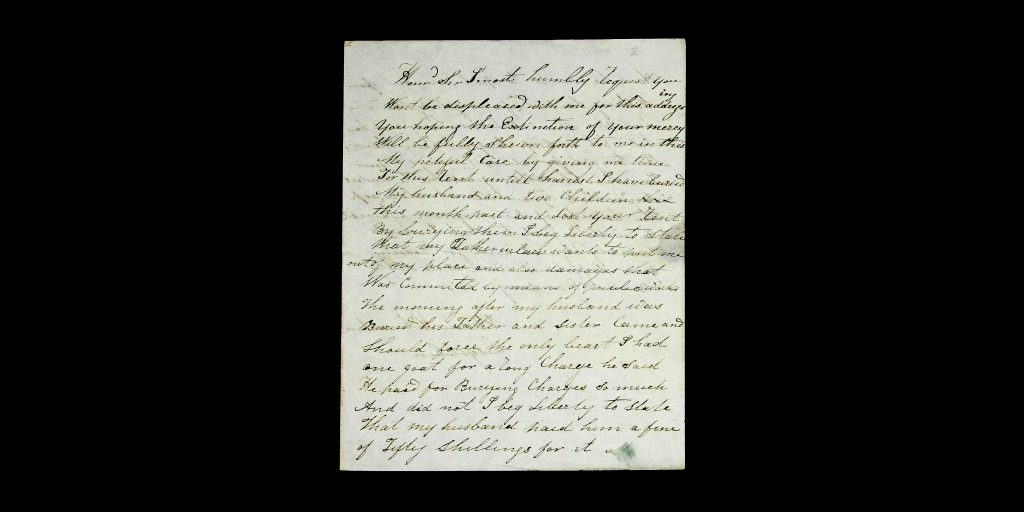 2
Hond Sir I most humbly Request you
Wont be displeased with me for this adressing
You hoping the Extinction of your mercy
Will be fully Shewn forth to me in this
My pitiful Case by giving me time
For this Rent untill harvest I have buried
My husband and two Children
this month past and Lost your Rent
By burying them I beg Liberty to State
That my Father in law wants to put me
out of my place and also damages that
Was Committed by means of public works
The morning after my husband was
Buried his Father and Sister Came and
Should force the only beast I had
one goat for a long Charge he said
He paid for Burying Charges so much
And did not I beg Liberty to State
That my husband paid him a fine
of Fifty Shillings for it